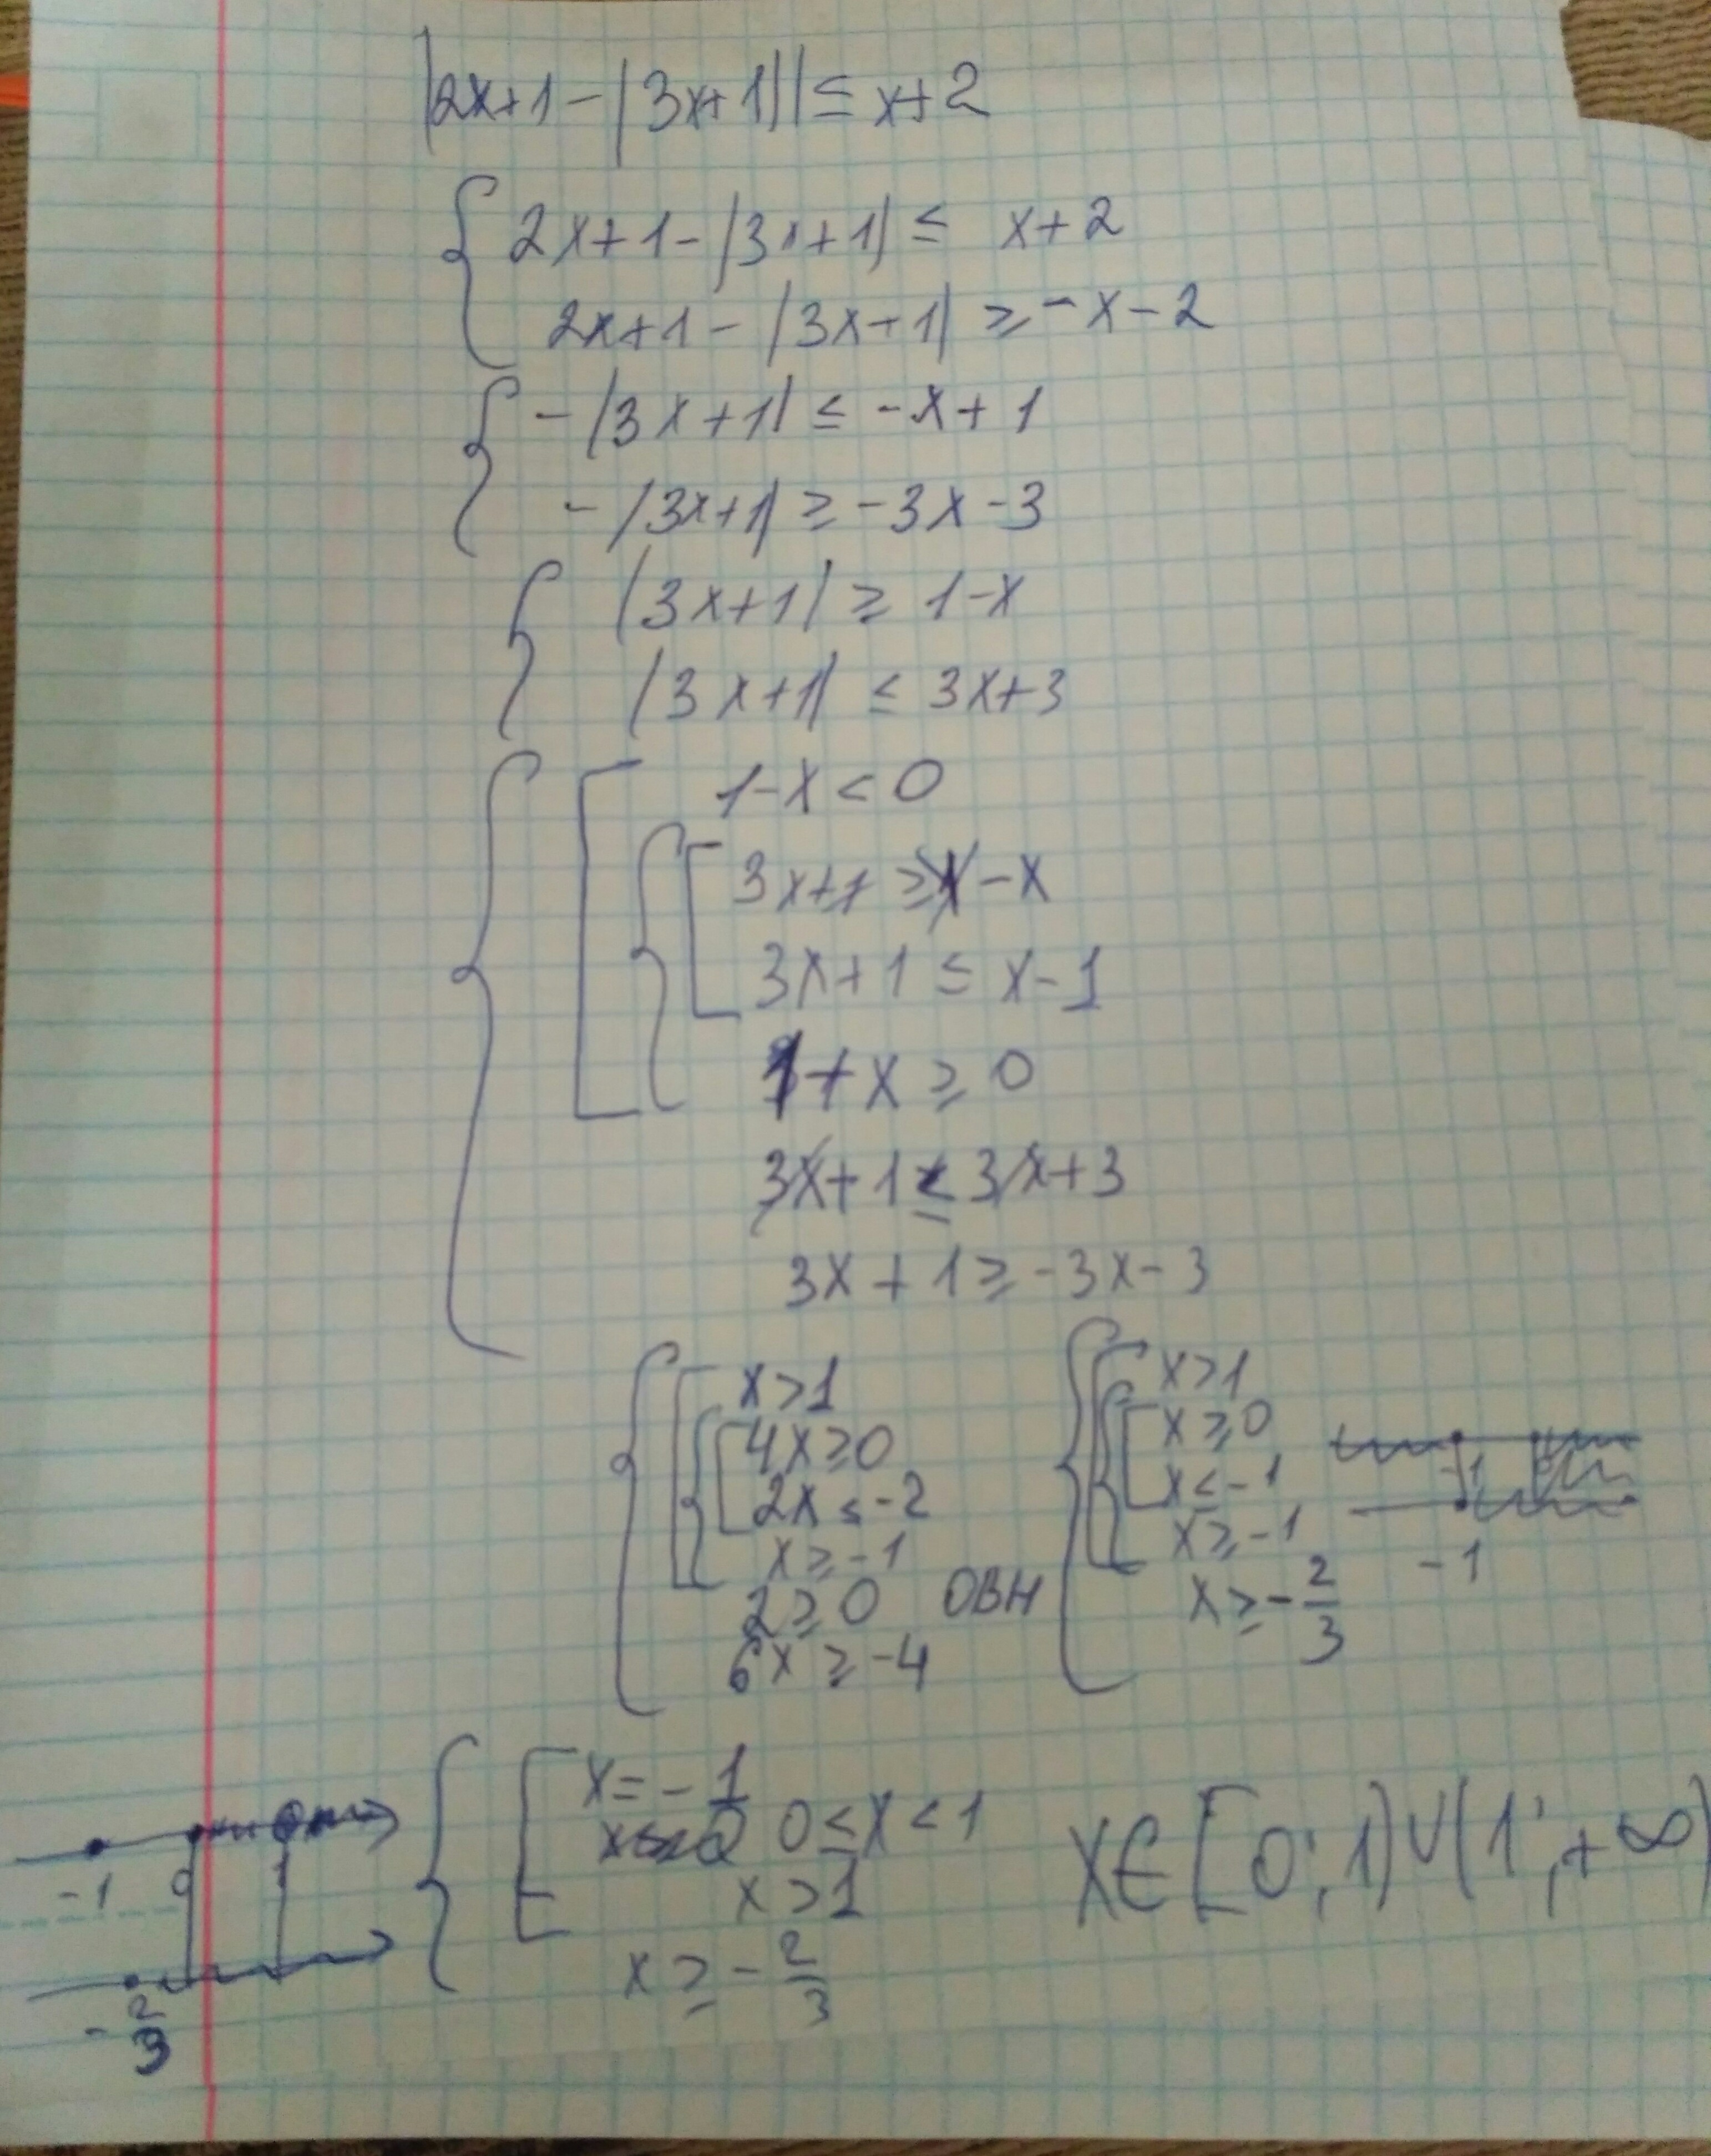 |2x+1-|3x+1|| ≤ x+2
{ 2x+1-|3x+1| ≤ x+2
2x+1-|3x+1| ≥ -x-2
{ -|3x+1| ≤ -x+1
-|3x+1| ≥ -3x-3
{ |3x+1| ≥ 1-x
|3x+1| ≤ 3x+3
{ [ 1-x < 0
{ [ 3x+1 ≥ 1-x
3x+1 ≤ x-1
1+x ≥ 0
3x+1 ≤ 3x+3
3x+1 ≥ -3x-3
{ [ x>1
{ [ 4x≥0
2x ≤ -2
x ≥ -1
2 ≥ 0 ОВН
6x ≥ -4
{ [ x>1
{ [ x ≥ 0
x ≤ -1
x ≥ -1
x ≥ -2/3
-1
-1
{ [ x = -1
0 ≤ x < 1
x > 1
x ≥ -2/3
x∈[0;1)∪(1;+∞)
-1 0 1
-2/3